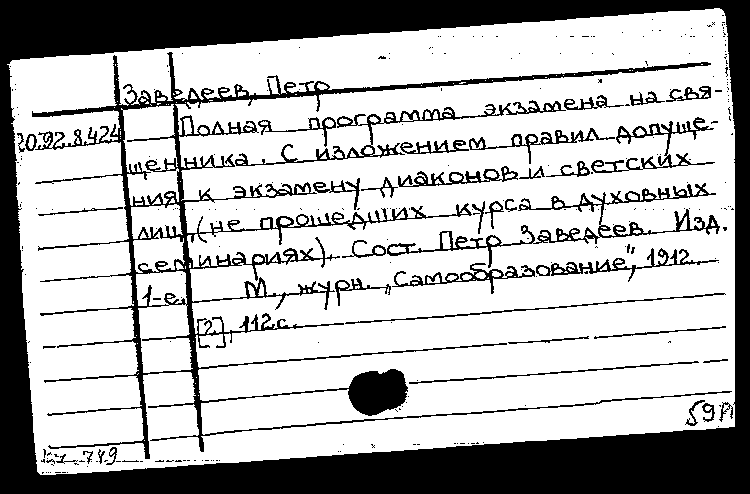 Заведеев, Петр
20.92.8.424 Полная программа экзамена на свя-
щенника. С изложением правил допуще-
ния к экзамену диаконов и светских
лиц, (не прошедших курса в духовных
семинариях). Сост. Петр Заведеев. Изд.
1-е. М., журн. „Самообразование", 1912.
[2], 112 с.
59
749